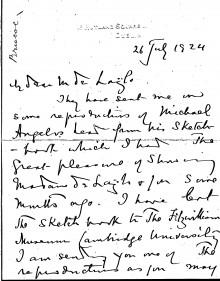 Private
RUTLAND SQUARE
DUBLIN
26 July 1924
My dear M de Laszlo.
They have sent me on
some reproductions of Michael
Angelos head from his Sketch
- book which I had the
great pleasure of showing
Madame de Laszlo & you some
months ago. I have lent
the Sketch book to The Fitzwilliam
Museum Cambridge University
I am sending you one of the
reproductions as you may